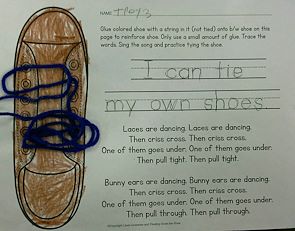 NAME Troy
Glue colored shoe with a string in it (not tied) onto b/w shoe on this
page to reinforce shoe. Only use a small amount of glue. Trace the
words. Sing the song and practice tying the shoe.
I can tie
my own shoes.
Laces are dancing. Laces are dancing.
Then criss cross. Then criss cross.
One of them goes under. One of them goes under.
Then pull tight. Then pull tight.
Bunny ears are dancing. Bunny ears are dancing.
Then criss cross. Then criss cross.
One of them goes under. One of them goes under.
Then pull through. Then pull through.